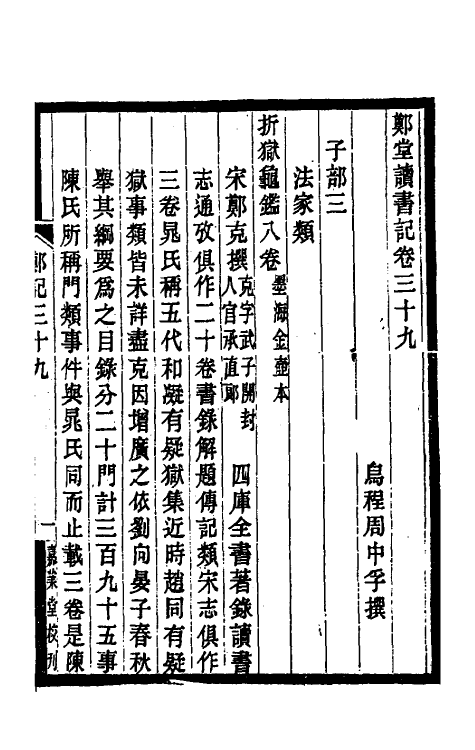 鄭堂讀書記卷三十九
烏程周中孚撰
子部三
法家類
折獄龜鑑八卷 墨海金壺本
宋鄭克撰 克字武子開封人官承直郎 四庫全書著錄讀書
志通攷俱作二十卷書錄解題傳記類宋志俱作
三卷晁氏稱五代和凝有疑獄集近時趙同有疑
獄事類皆未詳盡克因增廣之依劉向晏子春秋
舉其綱要爲之目錄分二十門計三百九十五事
陳氏所稱門類事件與晁氏同而止載三卷是陳
鄭記三十九
一
嘉業堂校刊